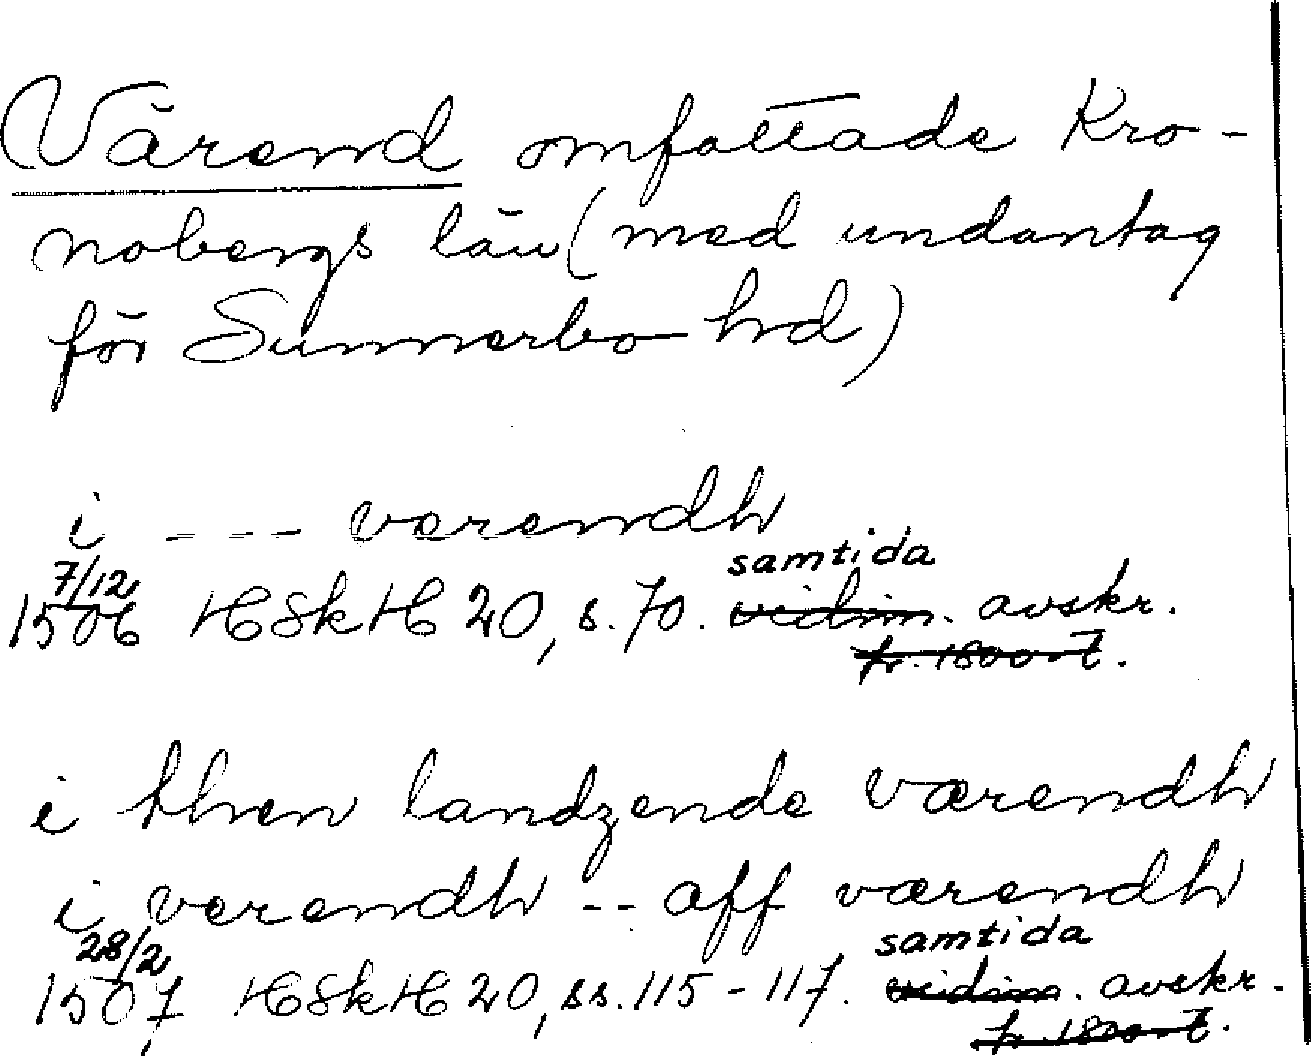 Värend omfattade Kro-
nobergs län (med undantag
för Sunnerbo hd)
i --- værendh
7/12
samtida
1506 HSkH 20, s. 70. vidim. avskr.
fr. 1800-t.
i then landzende værendh
i verendh -- aff værendh
28/2
samtida
1507 HSkH 20, ss. 115-117. vidim. avskr.
fr. 1800-t.